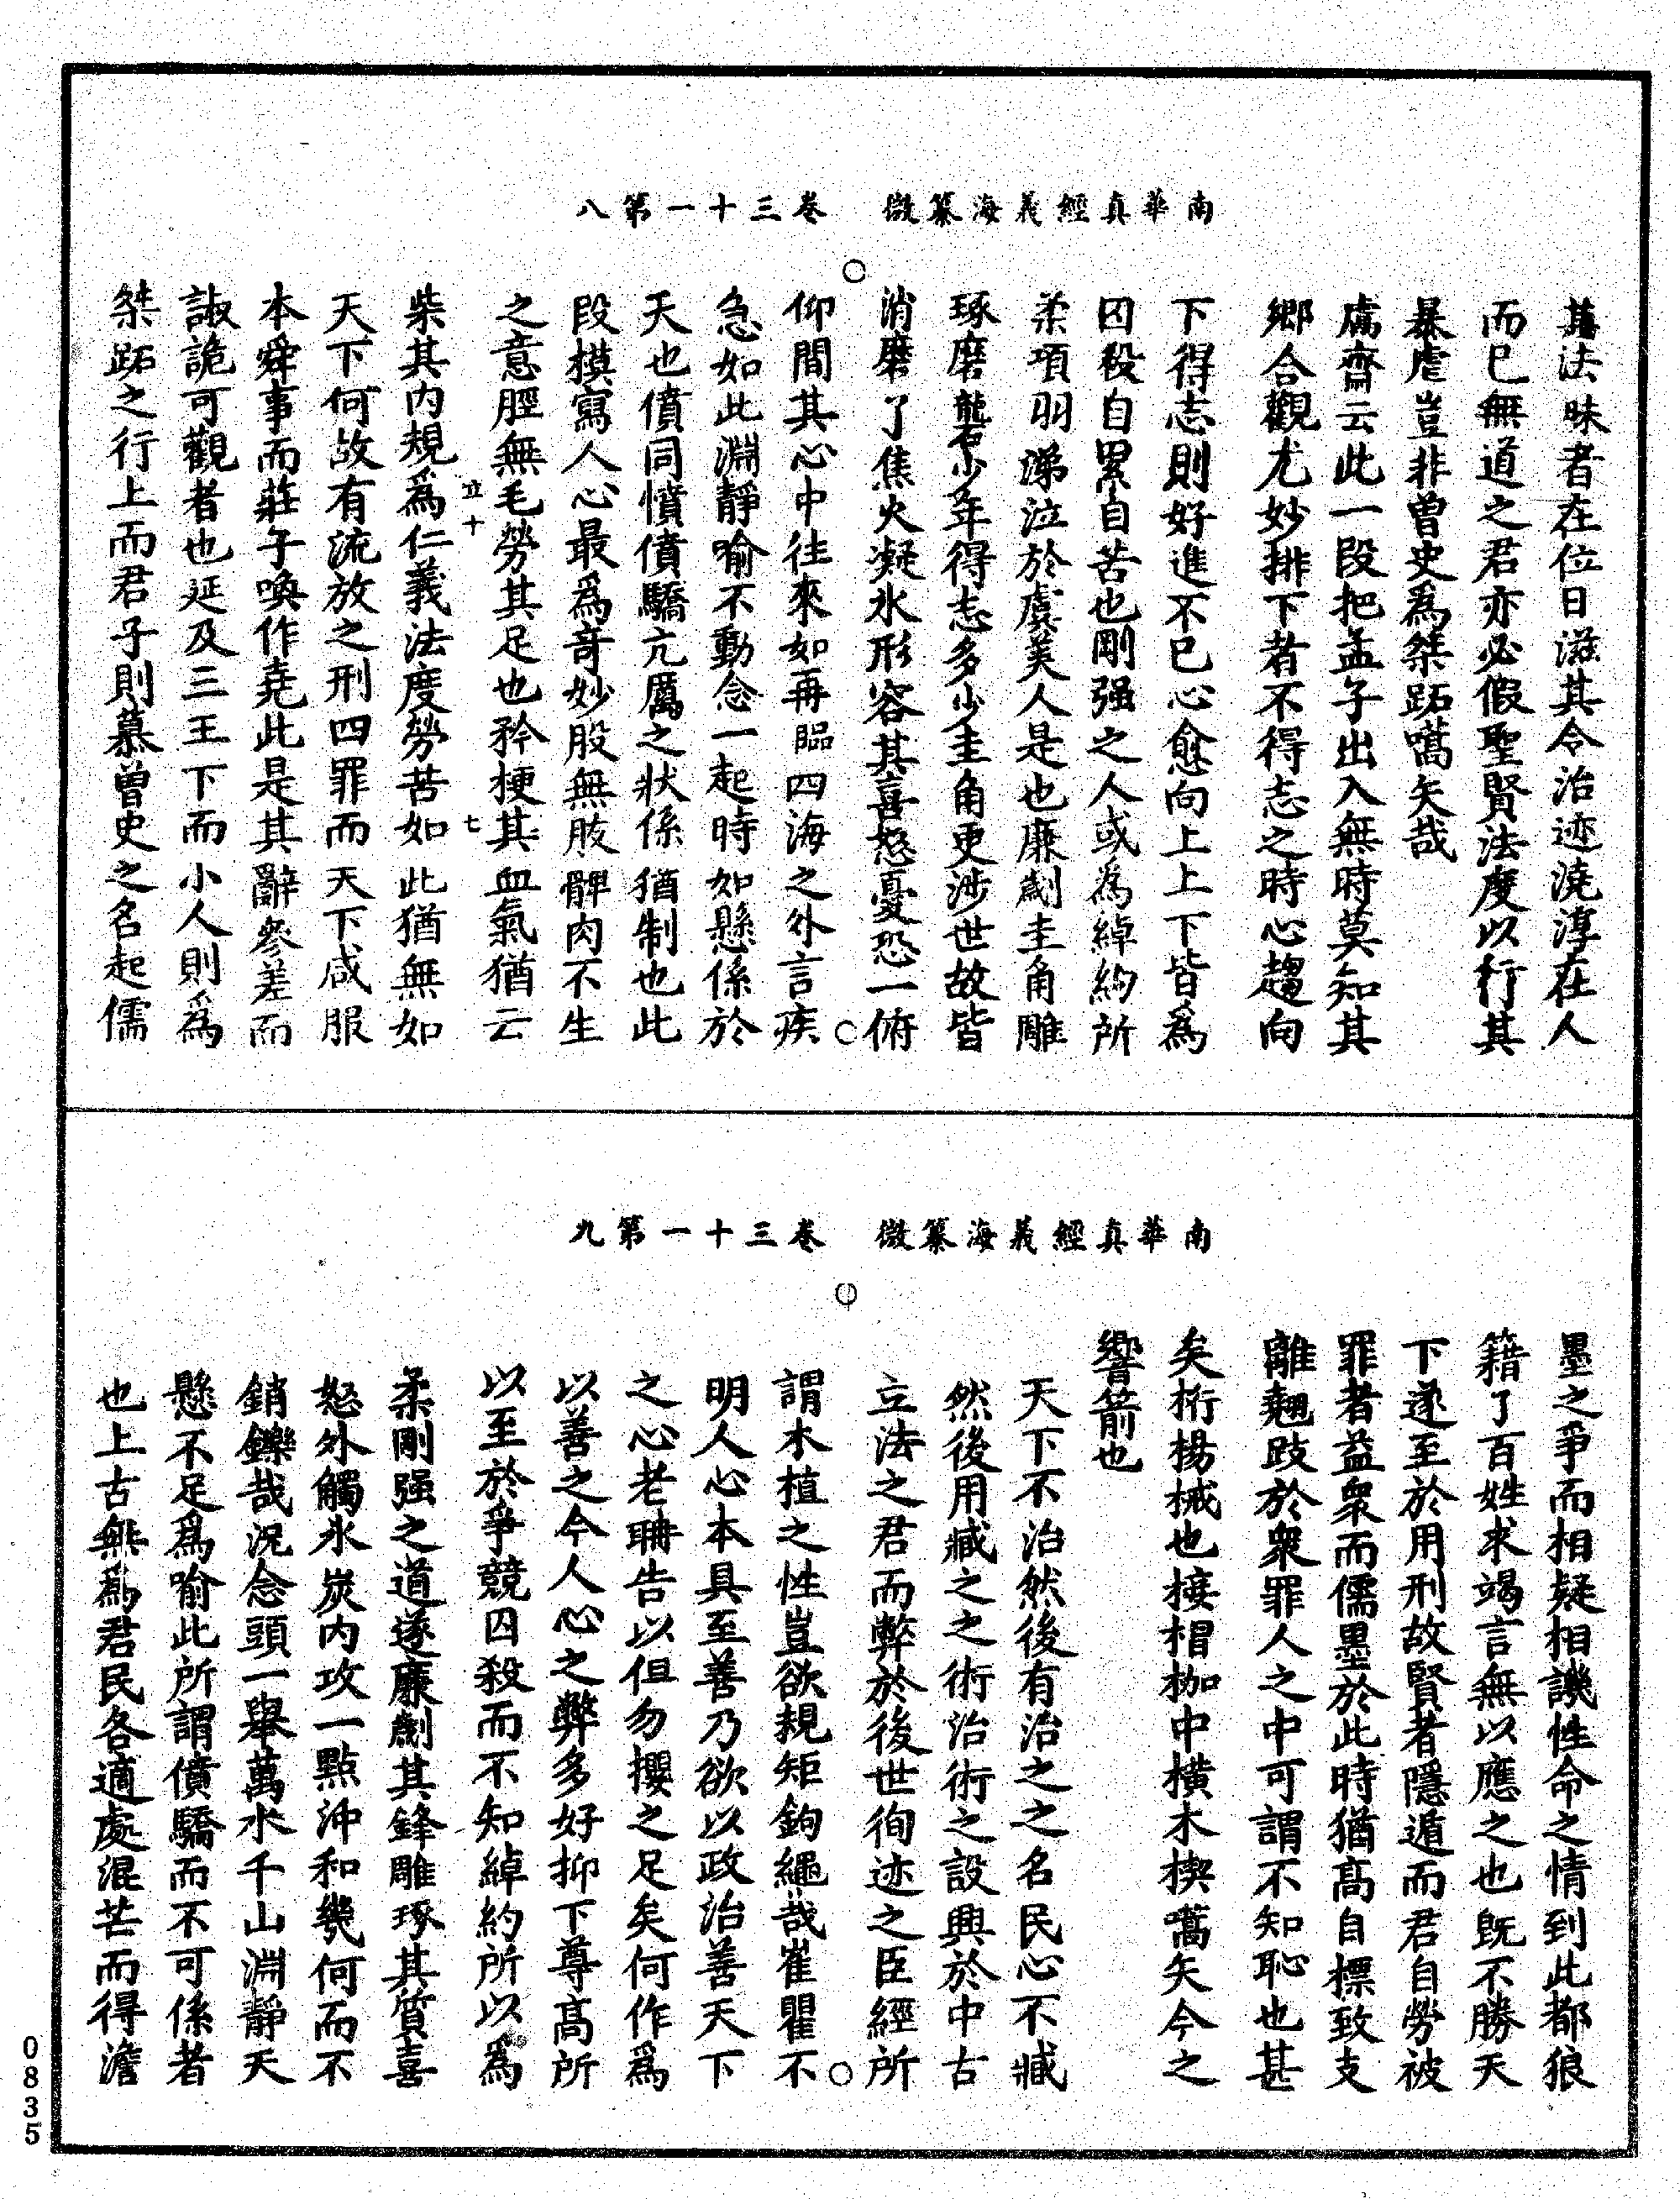 南華真經義海纂微　卷三十一第八
其法昧者在位日滋其令治迹澆淳在人
而已無道之君亦必假聖賢法度以行其
暴虐豈非曾史爲桀跖嚆矢哉
鬳齋云此一段把孟子出入無時莫知其
鄉合觀尤妙排下者不得志之時心趨向
下得志則好進不已心愈向上上下皆爲
囚殺自累自苦也剛强之人或爲綽約所
柔項羽涕泣於虞美人是也廉劌圭角雕
琢磨礱少年得志多少圭角更涉世故皆
消磨了焦火凝氷形容其喜怒憂恐一俯
仰間其心中往來如再臨四海之外言疾
急如此淵靜喻不動念一起時如懸係於
天也僨同憤僨驕亢厲之狀係猶制也此
段模寫人心最爲竒妙股無胈髀肉不生
之意脛無毛勞其足也矜梗其血氣猶云
立十　七
柴其内規爲仁義法度勞苦如此猶無如
天下何故有流放之刑四罪而天下咸服
本舜事而莊子喚作堯此是其辭參差而
諔詭可觀者也延及三王下而小人則爲
桀跖之行上而君子則慕曾史之名起儒
南華真經義海纂微　卷三十一第九
墨之爭而相疑相譏性命之情到此都狼
籍了百姓求竭言無以應之也既不勝天
下遂至於用刑故賢者隱遁而君自勞被
罪者益衆而儒墨於此時猶髙自標致支
離翹跂於衆罪人之中可謂不知恥也甚
矣桁楊械也椄槢枷中橫木楔嚆矢今之
響箭也
天下不治然後有治之之名民心不臧
然後用臧之之術治術之設興於中古
立法之君而弊於後世徇迹之臣經所
謂木植之性豈欲規矩鉤繩哉崔瞿不
明人心本具至善乃欲以政治善天下
之心老聃告以但勿攖之足矣何作爲
以善之今人心之弊多好抑下尊髙所
以至於爭競囚殺而不知綽約所以爲
柔剛强之道遂廉劌其鋒雕琢其質喜
怒外觸氷炭内攻一點沖和幾何而不
銷鑠哉況念頭一舉萬水千山淵靜天
懸不足爲喻此所謂僨驕而不可係者
也上古無爲君民各適處混芒而得澹
0835